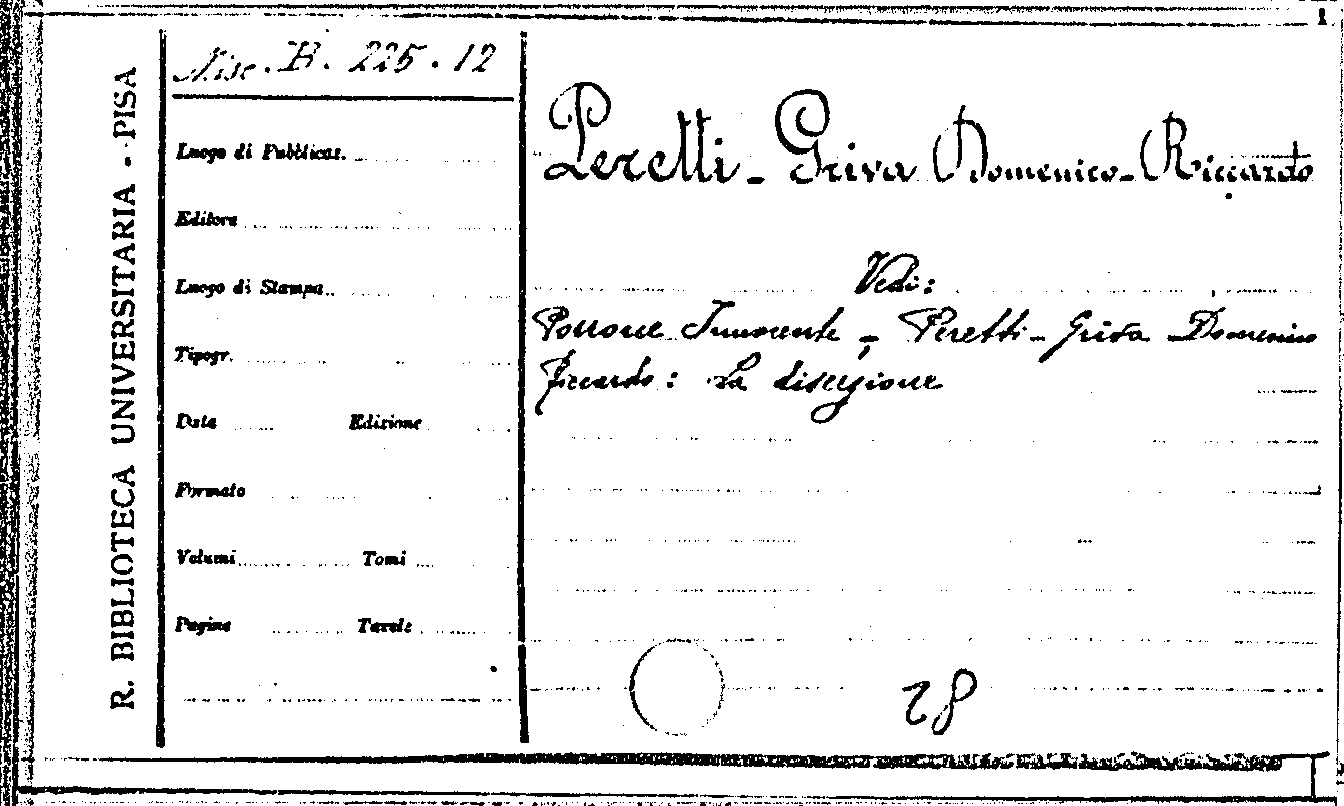 1
R. BIBLIOTECA UNIVERSITARIA - PISA
Misc. B. 225.12
Luogo di Pubblicaz.
Editore
Luogo di Stampa
Tipogr.
Data Edizione
Formato
Volumi Tomi
Pagine Tavole
Peretti-Griva Domenico-Riccardo
Vedi:
Innocente - Peretti-Griva Domenico
Riccardo: La
28